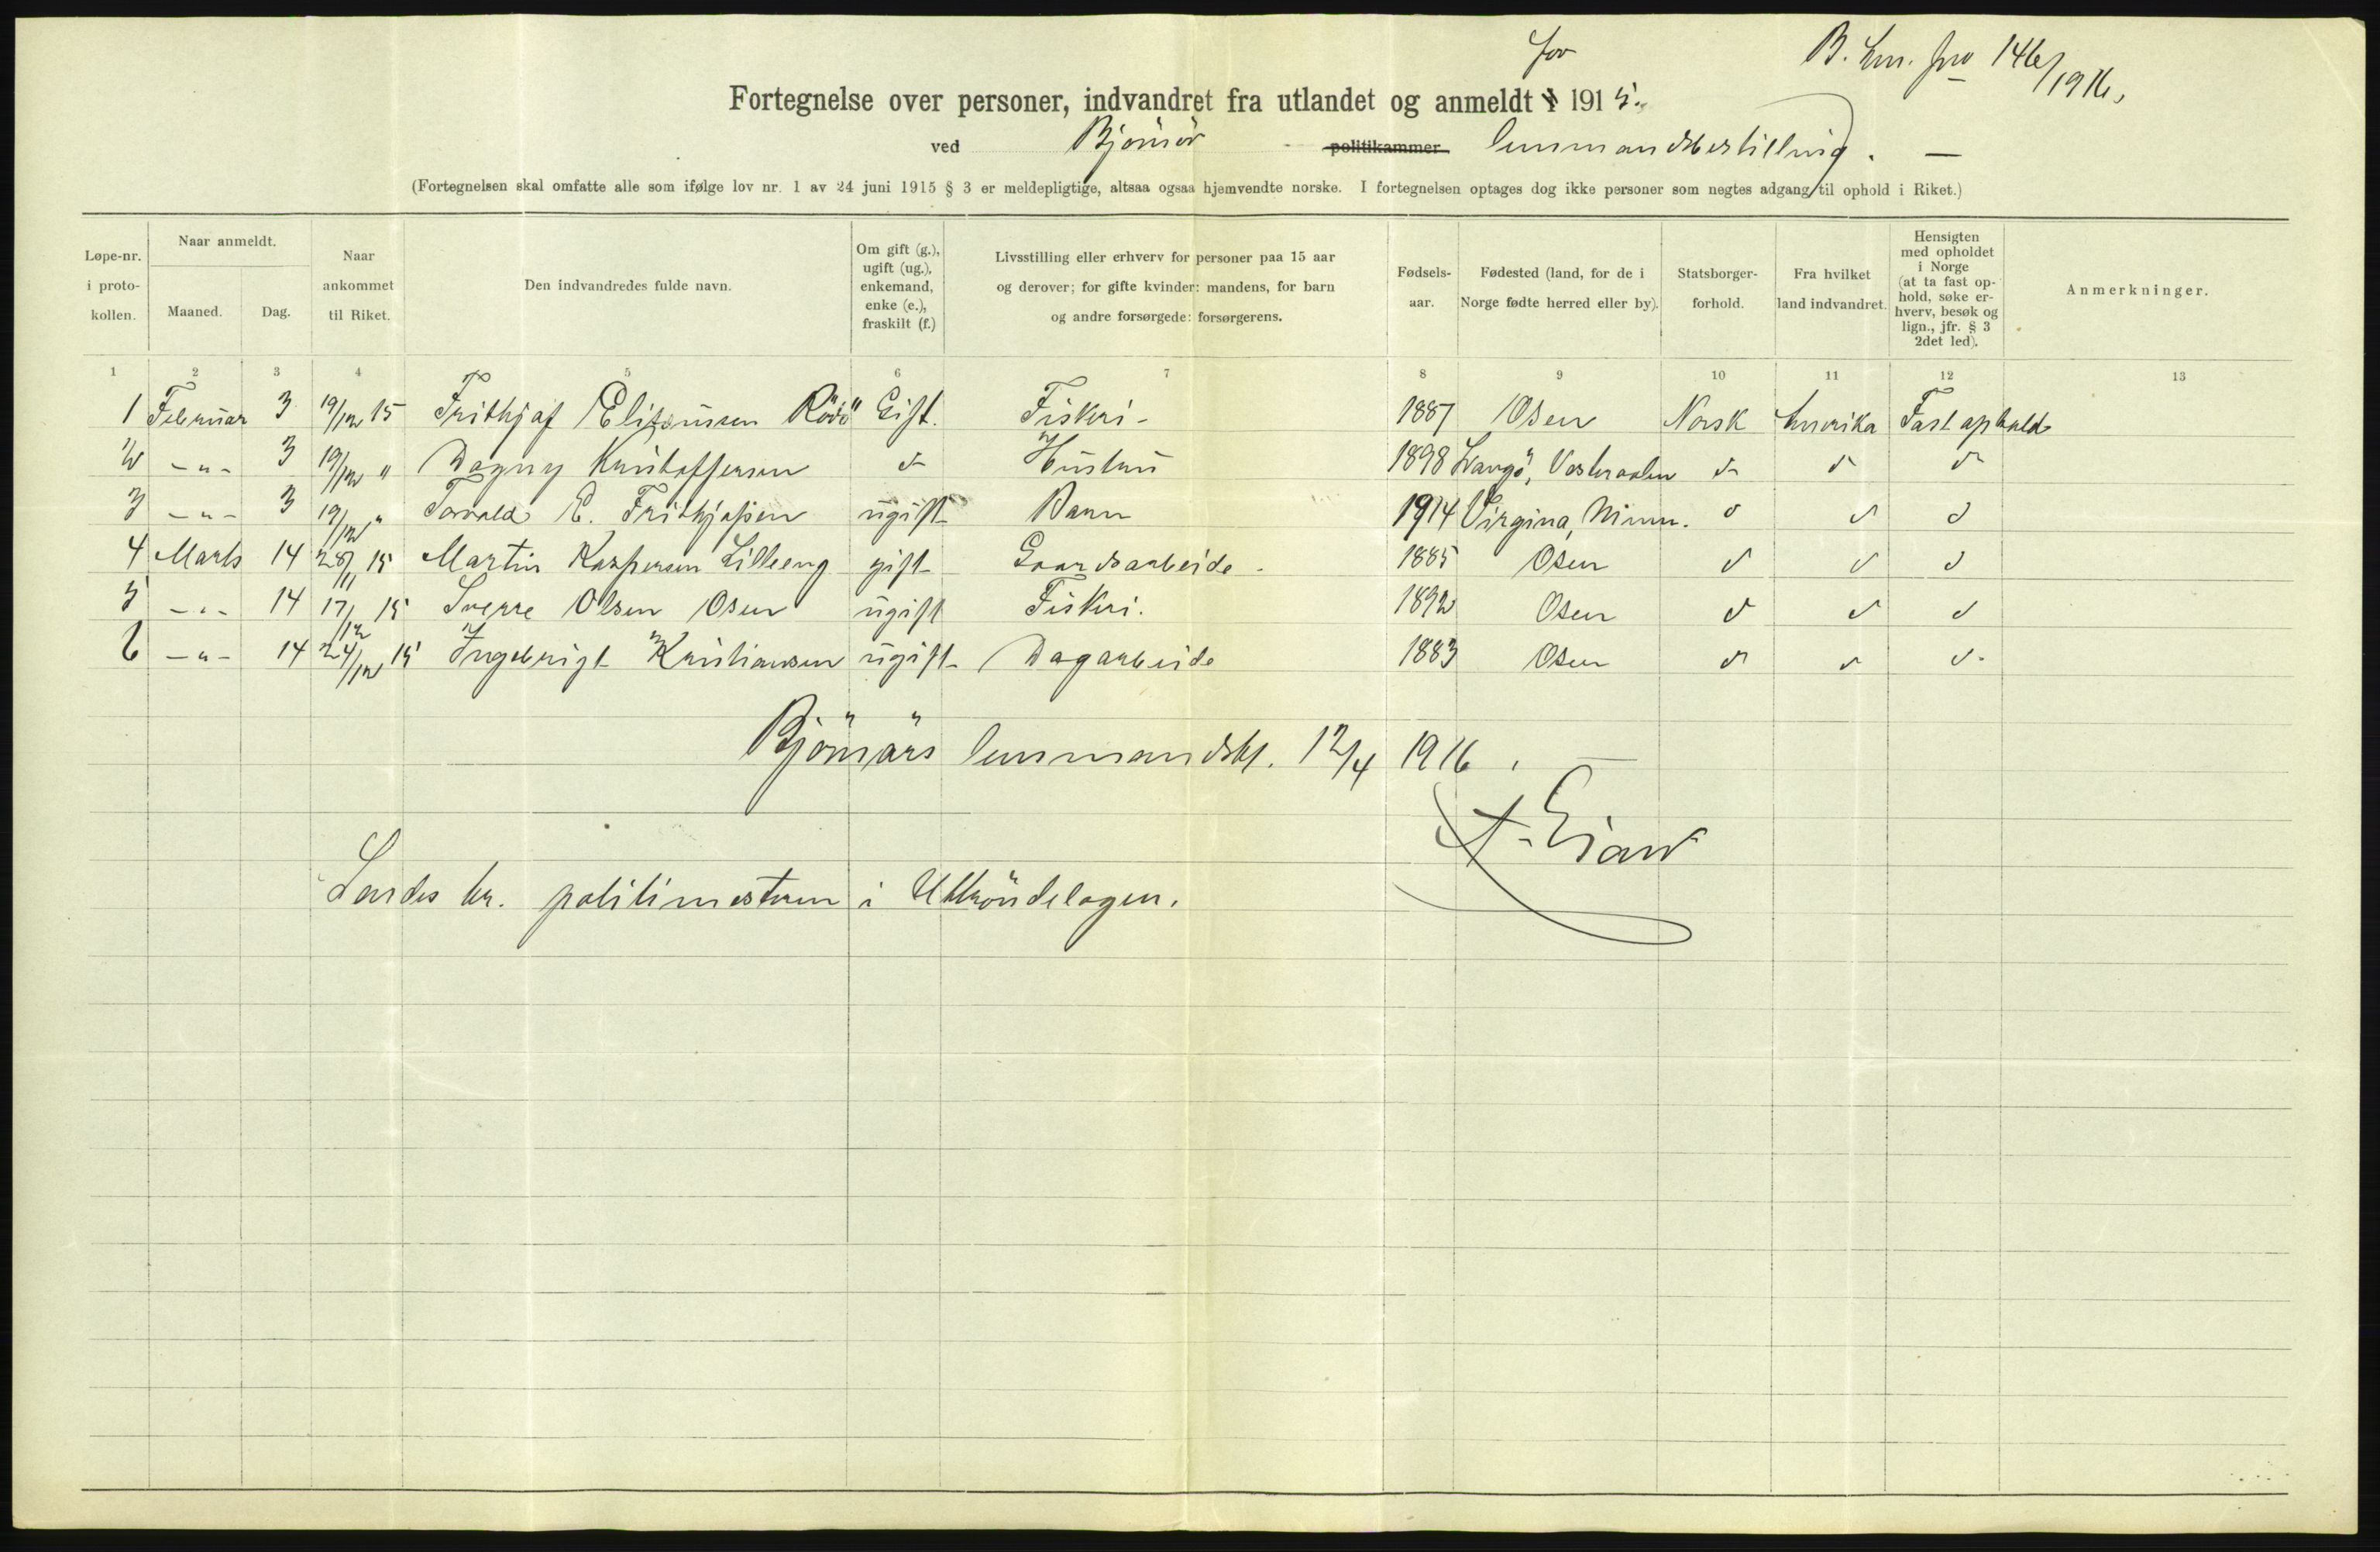 for
B. Lm. fro 146/1916,
Fortegnelse over personer, indvandret fra utlandet og anmeldt i 1915.
ved Bjørnør politikammer lensmandsbestilling. —
(Fortegnelsen skal omfatte alle som ifølge lov nr. 1 av 24 juni 1915 § 3 er meldepligtige, altsaa ogsaa hjemvendte norske. I fortegnelsen optages dog ikke personer som negtes adgang til ophold i Riket.)
Løpe-nr. i proto-kollen.
Naar anmeldt.
Maaned.
Dag.
Naar ankommet til Riket.
Den indvandredes fulde navn.
Om gift (g.), ugift (ug.), enkemand, enke (e.), fraskilt (f.)
Livsstilling eller erhverv for personer paa 15 aar og derover; for gifte kvinder: mandens, for barn og andre forsørgede: forsørgerens.
Fødsels-aar.
Fødested (land, for de i Norge fødte herred eller by).
Statsborger-forhold.
Fra hvilket land indvandret.
Hensigten med opholdet i Norge (at ta fast op-hold, søke er-hverv, besøk og lign., jfr. § 3 2det led).
Anmerkninger.
1 2 3 4 5 6 7 8 9 10 11 12 13
1 Februar 3 19/12 15 Frithjof Eliseussen Rödö Gift. Fiskeri - 1887 Osen Norsk Amerika Fast ophold
2 -"- 3 19/12 " Dagny Kristoffersen do Hustru 1898 Langö, Vesteraalen do do do
3 -"- 3 19/12 " Torvald E. Frithjofsen ugift Barn 1914 Virgina, Minn. do do do
4 Marts 14 28/11 15 Martin Kaspersen Lilleeng gift Gaardsarbeide - 1885 Osen do do do
5 -"- 14 17/12 15 Sverre Olsen Osen ugift Fiskeri. 1892 Osen do do do
6 -"- 14 24/12 15 Ingebrigt Kristiansen ugift Dagarbeide 1883 Osen do do do
Björnörs lensmandsbt. 12/4 1916.
Sendes hr. politimesteren i Uttröndelagen.